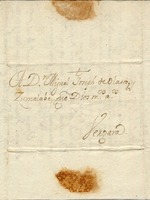 A D. Miguel Joseph de Olaso, y
Zumalabe, que Dios m.s a.s
Vergara